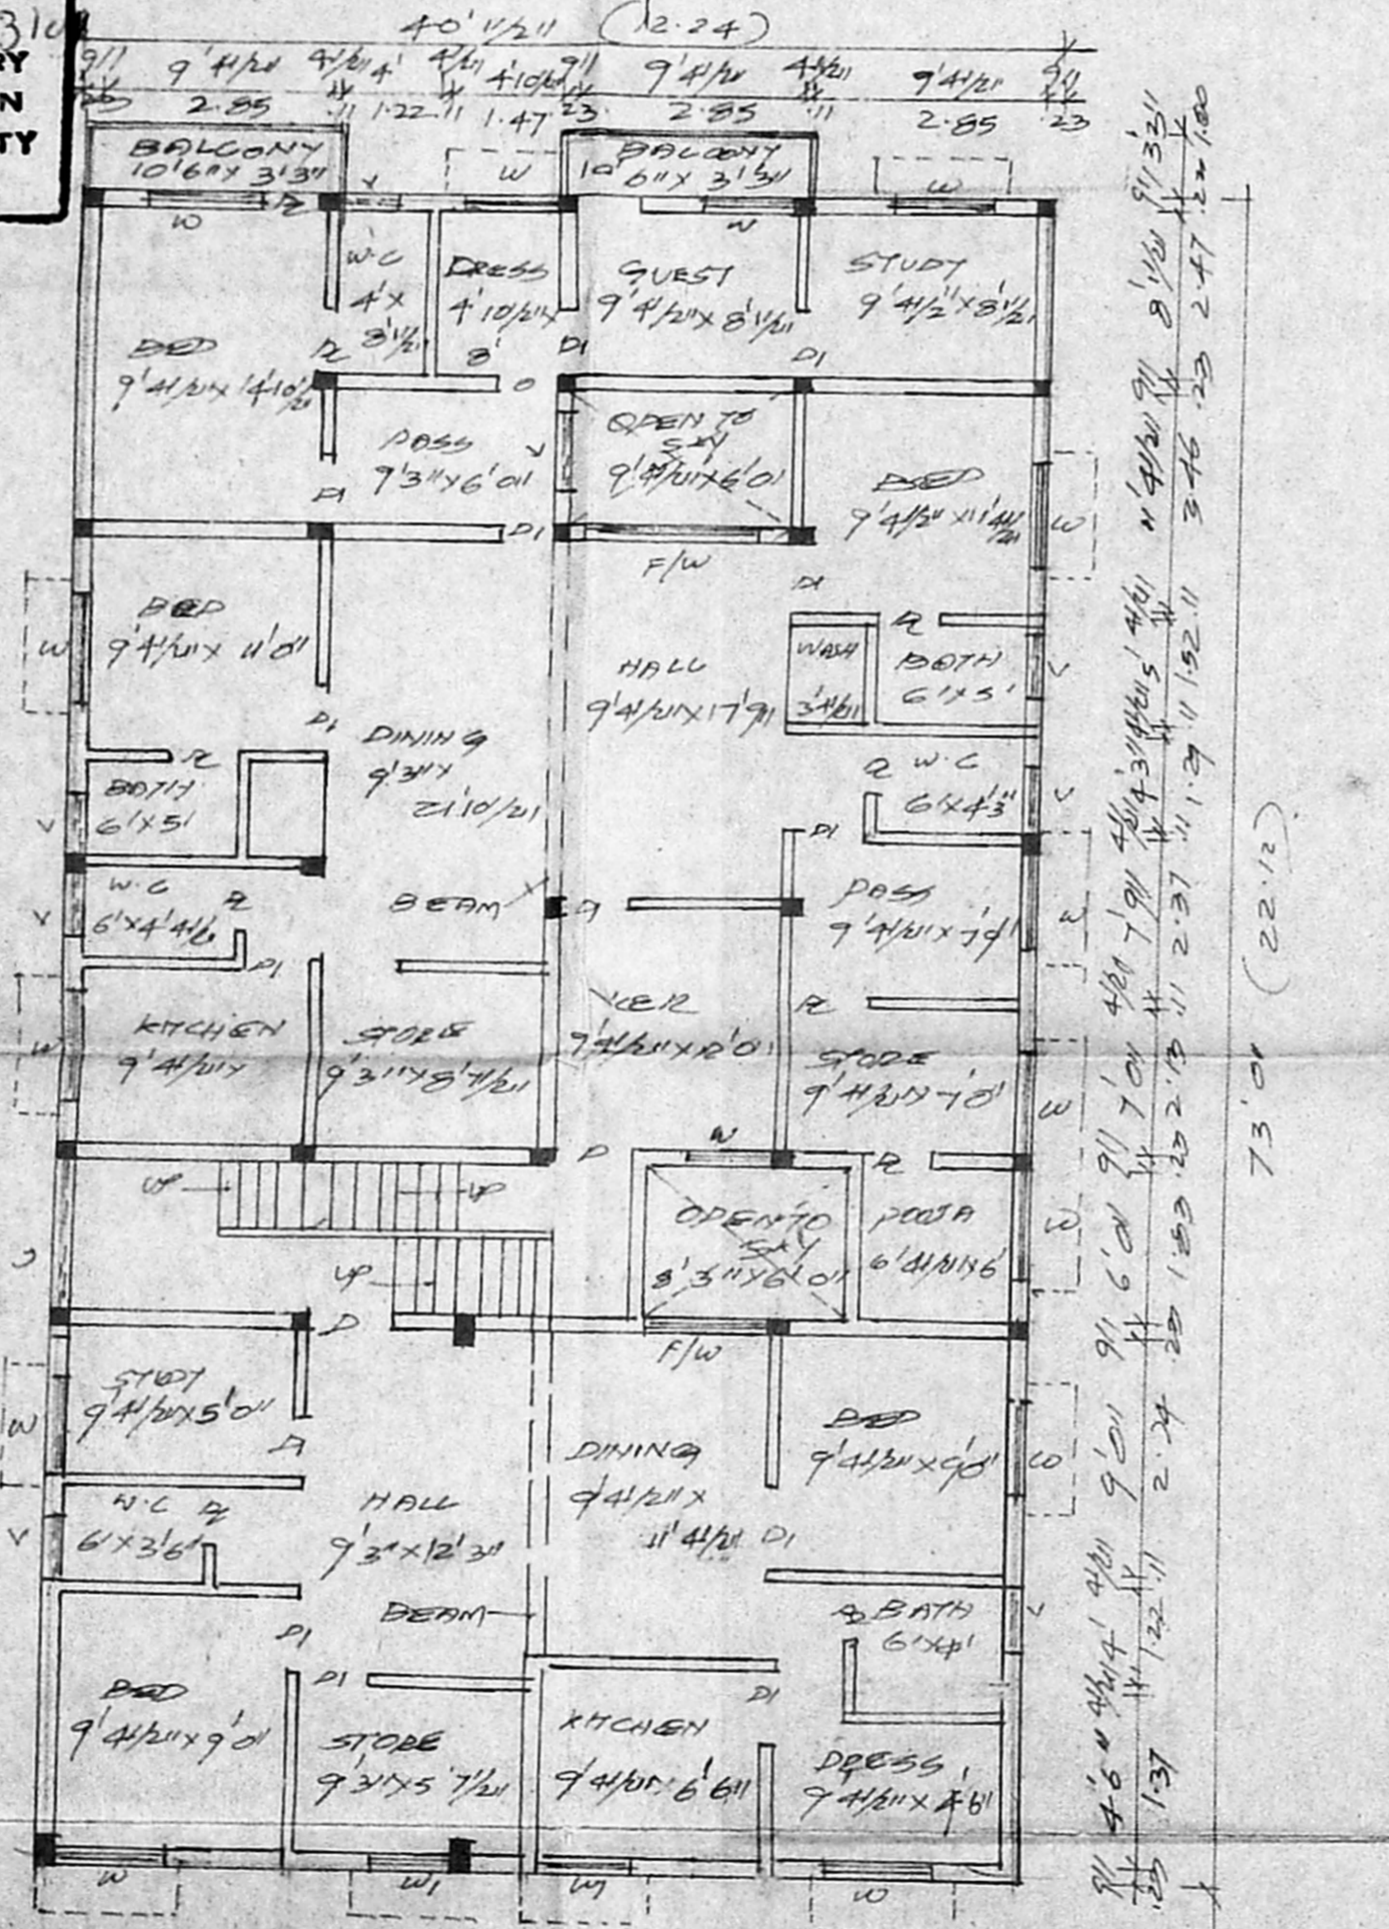 RY
N
TY
40' 1 1/2" (12.24)
9" 9' 4 1/2" 4 1/2" 4' 4 1/2" 4'10 1/2" 9" 9' 4 1/2" 4 1/2" 9' 4 1/2" 9"
.23 2.85 .11 1.22 .11 1.47 .23 2.85 .11 2.85 .23
BALCONY
10'6" X 3'3"
BALCONY
10'6" X 3'3"
V
W
W
W
D2
W
W.C
4' X
8' 1 1/2"
DRESS
4' 10 1/2" X
8'
GUEST
9' 4 1/2" X 8' 1 1/2"
STUDY
9' 4 1/2" X 8' 1 1/2"
BED
9' 4 1/2" X 14' 10 1/2"
D2
D1
D1
O
PASS
9' 3" X 6' 0"
V
OPEN TO
SKY
9' 4 1/2" X 6' 0"
BED
9' 4 1/2" X 11' 4 1/2"
W
D1
D1
F/W
D1
BED
9' 4 1/2" X 11' 0"
W
HALL
9' 4 1/2" X 17' 9"
WASH
3' 4 1/2"
D2
BOTH
6' X 5'
V
D1
DINING
9' 3" X
21' 10 1/2"
D2
BOTH
6' X 5'
V
D2
W.C
6' X 4' 3"
V
D1
W.C
6' X 4' 4 1/2"
D2
V
BEAM
PASS
9' 4 1/2" X 7' 9"
D1
KITCHEN
9' 4 1/2" X
W
STORE
9' 3" X 8' 7 1/2"
9' 4 1/2" X 12' 0"
D2
STORE
9' 4 1/2" X 7' 0"
W
W
D
D2
UP
UP
UP
OPEN TO
SKY
8' 3" X 6' 0"
POOJA
6' 4 1/2" X 6'
W
D
F/W
STUDY
9' 4 1/2" X 5' 0"
W
D1
HALL
9' 3" X 12' 3"
DINING
9' 4 1/2" X
11' 4 1/2"
D1
BED
9' 4 1/2" X 9' 0"
W
W.C
6' X 3' 6"
D2
V
BEAM
D2
BATH
6' X 4'
V
D1
D1
D1
BED
9' 4 1/2" X 9' 0"
STORE
9' 3" X 5' 7 1/2"
KITCHEN
9' 4 1/2" X 6' 6"
DRESS
9' 4 1/2" X 4' 6"
W
W1
W1
W
9" 4'-6" 4 1/2" 4' 4 1/2" 9' 0" 9" 6' 0" 9" 7' 0" 4 1/2" 7' 9" 4 1/2" 4' 3" 4 1/2" 5' 4 1/2" 11' 4 1/2" 9" 8' 1 1/2" 9" 3' 3"
.23 1.37 .11 1.22 .11 2.74 .23 1.83 .23 2.13 .11 2.37 .11 1.29 .11 1.52 .11 3.46 .23 2.47 .23 1.00
73' 0" (22.12)